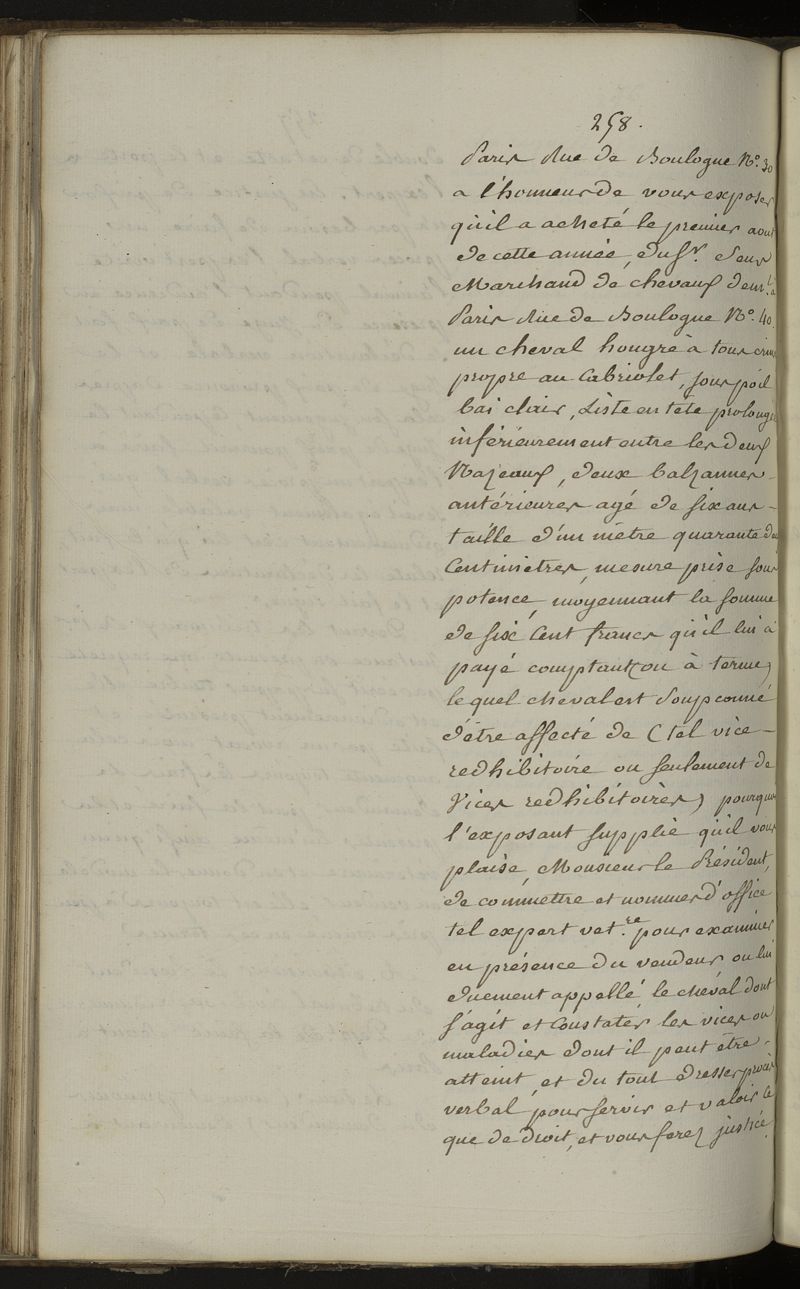 258.
Paris Rue de Boulogne N.º 30
a l'honneur de vous exposer
qu'il a acheté le premier aout
de cette année, du S.r
Marchand de chevaux dem.t à
Paris Rue de Boulogne N.º 40.
un cheval hongre à tous crins
propre au Cabriolet, sous poil
bai clair, Liste en tête prolongée
inférieurement entre les deux
Nazeaux, deux balzannes
antérieures agé de six ans -
taille d'un mètre quarante
Centimetres, mesure prise sous
potence, moyennant la somme
de six Cent francs qu'il lui à
payé comptant (ou à terme)
le quel cheval est Soupconné
d'être affecté de (tel vice -
redhibitoire ou seulement de
Vices redhibitoires) pourquoi
l'exposant supplie qu'il vous
plaise, Monsieur le Président,
de commettre et nommer d'office
tel expert vet.re pour examiner
en présence du vendeur ou lui
duement appellé le cheval dont
s'agit et Constater les vices ou
maladies dont il peut être -
atteint, et du tout dresser procès
verbal pour servir et valoir ce
que de droit, et vous ferez justice.